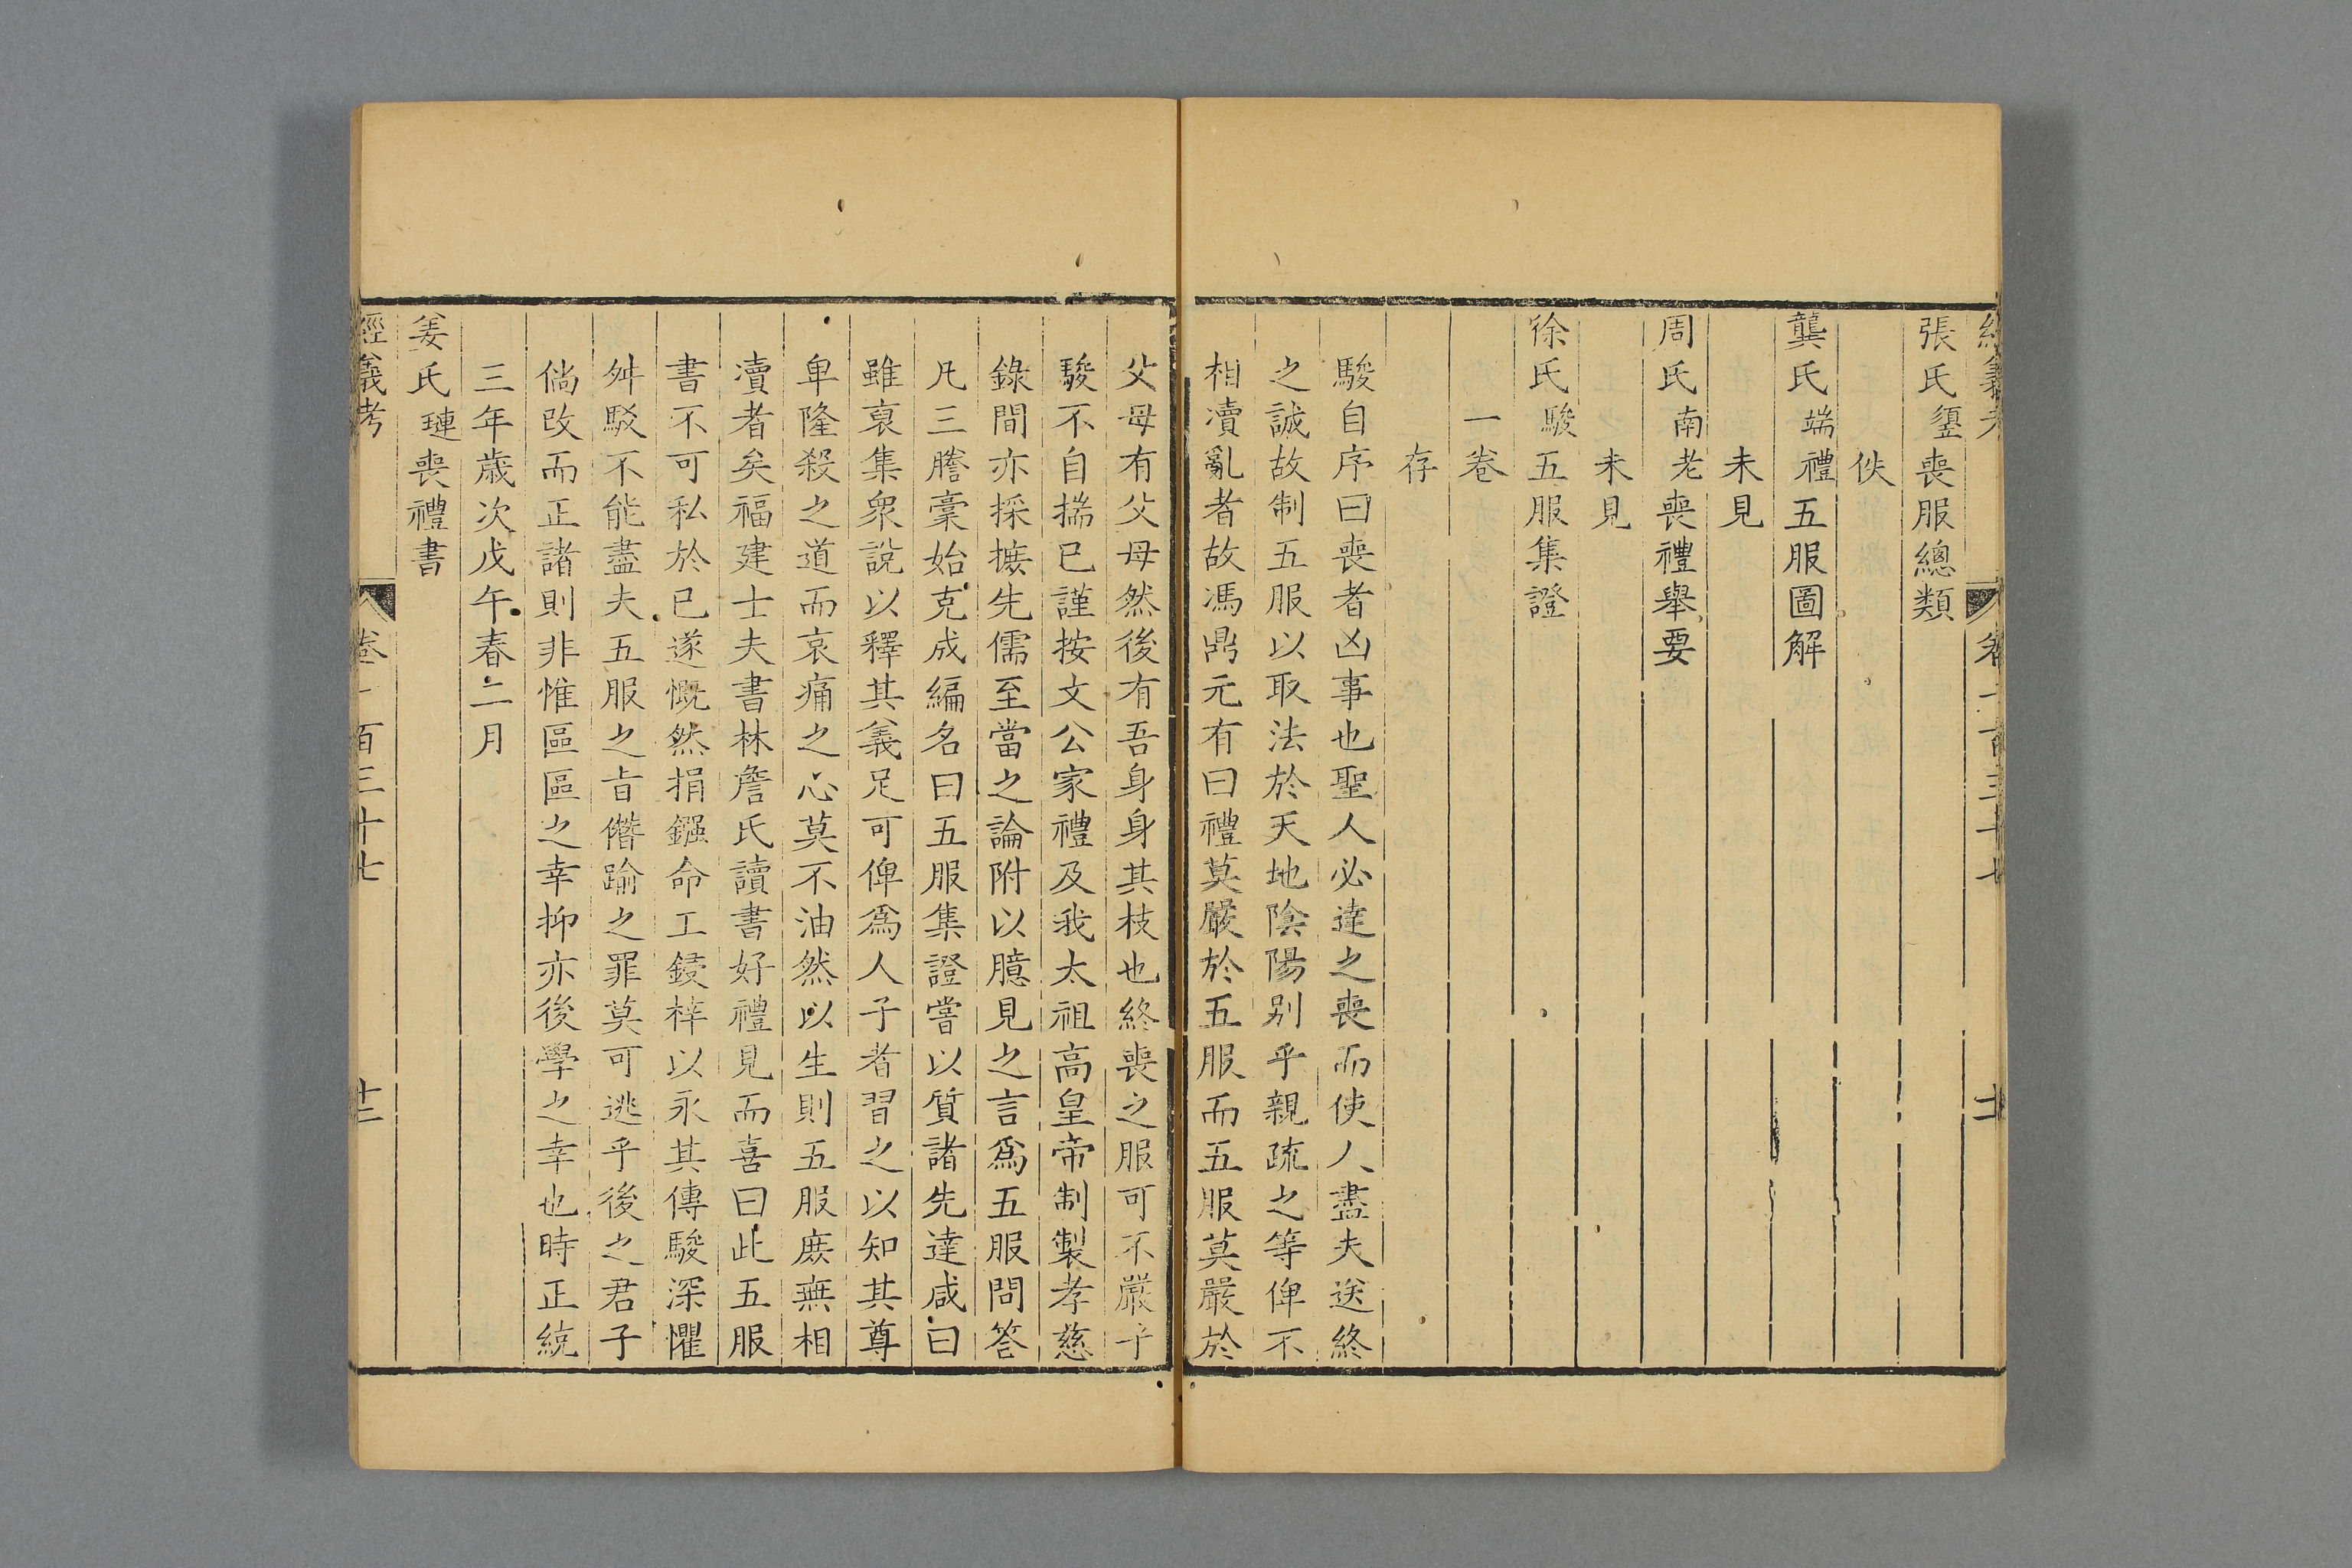 張氏鍙喪服總類
佚
龔氏端禮五服圖解
未見
周氏南老喪禮舉要
未見
徐氏駿五服集證
一卷
存
駿自序曰喪者凶事也聖人必達之喪而使人盡夫送終
之誠故制五服以取法於天地陰陽别乎親疏之等俾不
相瀆亂者故馮鼎元有曰禮莫嚴於五服而五服莫嚴於
父母有父母然後有吾身身其枝也終喪之服可不嚴乎
駿不自揣已謹按文公家禮及我太祖高皇帝制製孝慈
錄間亦採摭先儒至當之論附以臆見之言爲五服問答
凡三謄藁始克成編名曰五服集證嘗以質諸先達咸曰
雖裒集衆說以釋其義足可俾爲人子者習之以知其尊
卑隆殺之道而哀痛之心莫不油然以生則五服庶無相
瀆者矣福建士夫書林詹氏讀書好禮見而喜曰此五服
書不可私於已遂慨然捐鏹命工鋟梓以永其傳駿深懼
舛駁不能盡夫五服之㫖僭踰之罪莫可逃乎後之君子
倘改而正諸則非惟區區之幸抑亦後學之幸也時正統
三年歲次戊午春二月
姜氏璉喪禮書
經義考
卷一百三十七
十二